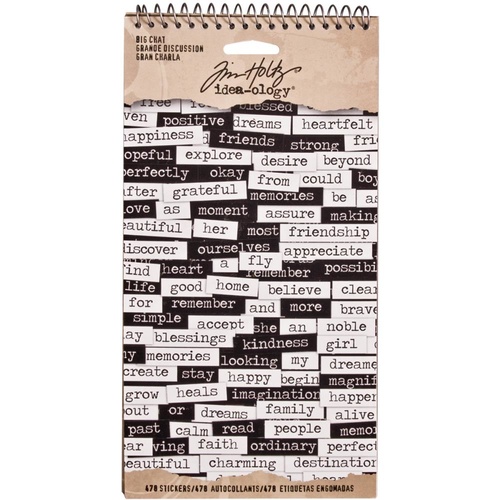 BIG CHAT
GRANDE DISCUSSION
GRAN CHARLA
Tim Holtz
idea-ology
free for blessed
ven positive dreams heartfelt
happiness friends strong fri
opeful explore desire beyond
perfectly okay from could boy
after grateful memories be as
love as moment assure making
eautiful her most friendship
discover ourselves appreciate
ind heart a fly remember possibi
life good home believe clea
for remember and more brave
simple accept she an noble
ay blessings kindness girl
my memories looking my
create stay happy begin magnif
grow heals imagination happen
out or dreams family alive
past calm read people memor
ear ving faith ordinary perfect
478 STICKERS/478 AUTOCOLLANTS/478 ETIQUETAS ENGOMADAS